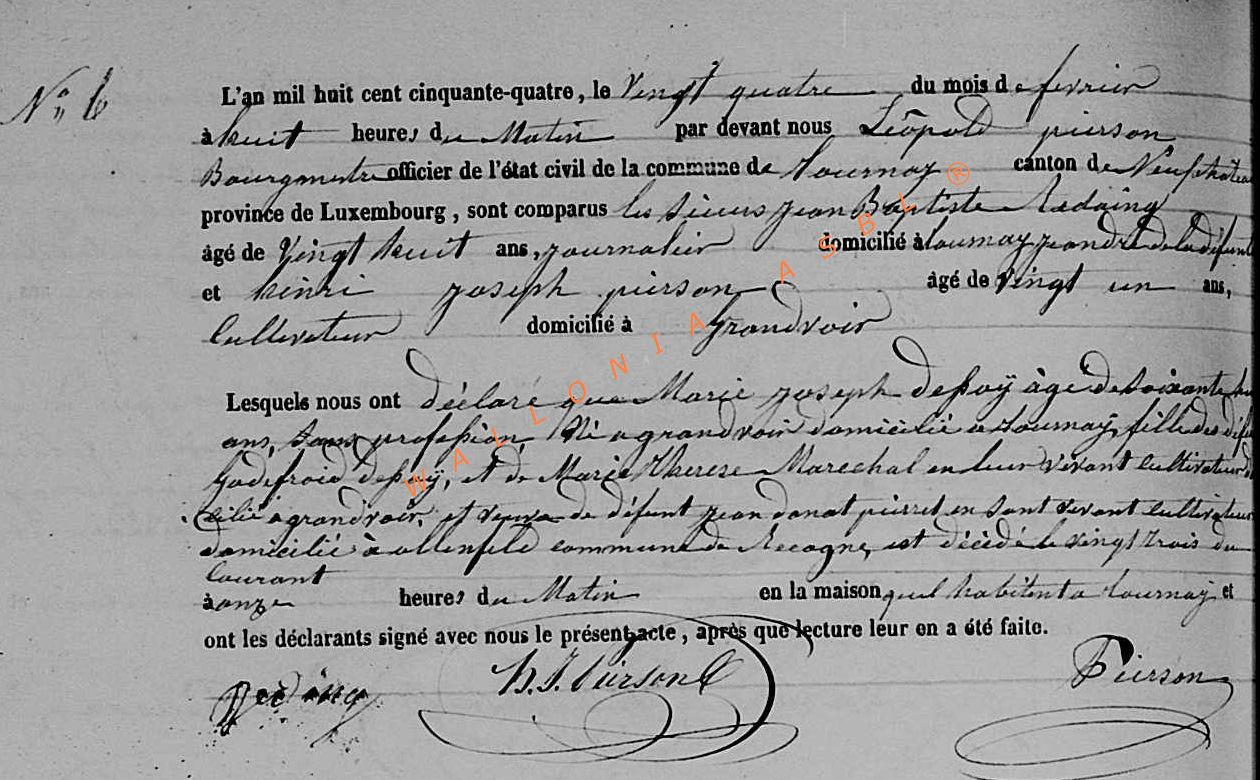 N° 6
L'an mil huit cent cinquante-quatre, le vingt quatre du mois de fevrier
à huit heures du Matin par devant nous Léopold pierson
Bourgmestre officier de l'état civil de la commune de tournay canton de Neufchâteau
province de Luxembourg, sont comparus les sieurs jean Baptiste
âgé de vingt huit ans, journalier domicilié à tournay, gendre de la défunte
et henri joseph pierson âgé de vingt un ans,
Cultivateur domicilié à grandvoir
Lesquels nous ont déclaré que Marie joseph deßoÿ àgé de soixante
ans, sans profeßion, Né a grandvoir domicilié a tournay, fille des
Godefroid deßoÿ, et de Marie therese Marechal en leur vivant Cultivateur
cilié a grandvoir, et veuve de défunt jean donat pierret en sont vivant Cultivateur
domicilié à ollenfeld commune de Recogne, est décédé le vingt trois du
Courant
à onze heures du Matin en la maison quel habitent a tournay et
ont les déclarants signé avec nous le présent acte, après que lecture leur en a été faite.
H. J. Pierson Pierson
WALLONIA ASBL ®